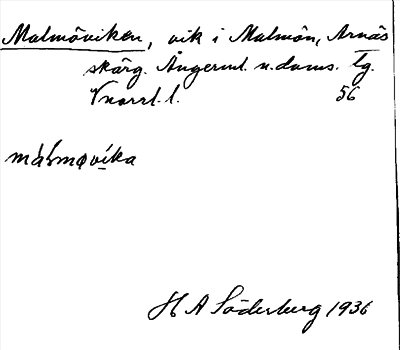 Malmöviken, vik i Malmön, Arnäs
skärg. Ångerml. n. doms. tg.
Vnorrl. l. 56
H A Söderberg 1936